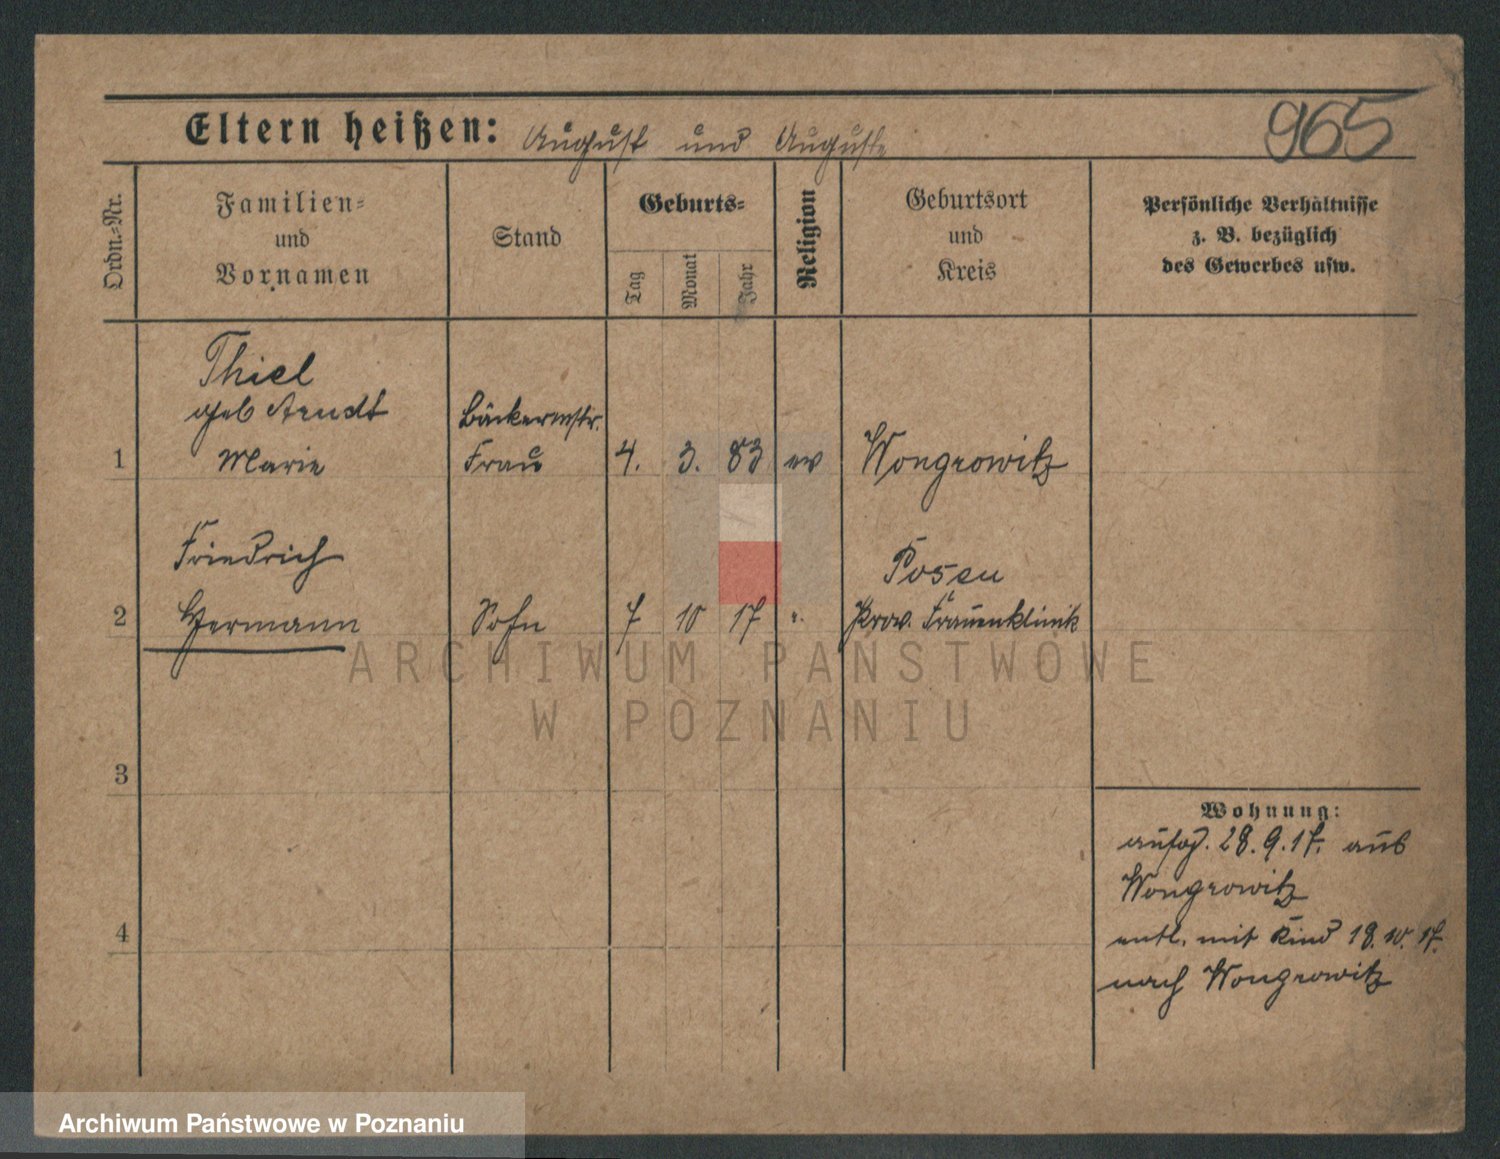 965
Eltern heißen: August und Auguste
Ordn.-Nr.
Familien-
und
Vornamen
Stand
Geburts-
Tag
Monat
Jahr
Religion
Geburtsort
und
Kreis
Persönliche Verhältnisse
z. B. bezüglich
des Gewerbes usw.
Thiel
geb Arndt
Bäckermstr.
1 Marie Frau 4. 3. 83 ev Wongrowitz
Friedrich
Posen
2 Hermann Sohn 7 10 17 ". Prov. Frauenklinik
ARCHIWUM PAŃSTWOWE
W POZNANIU
3
Wohnung:
aufg. 28.9.17. aus
Wongrowitz
4
entl. mit Kind 18.10.17.
nach Wongrowitz
Archiwum Państwowe w Poznaniu